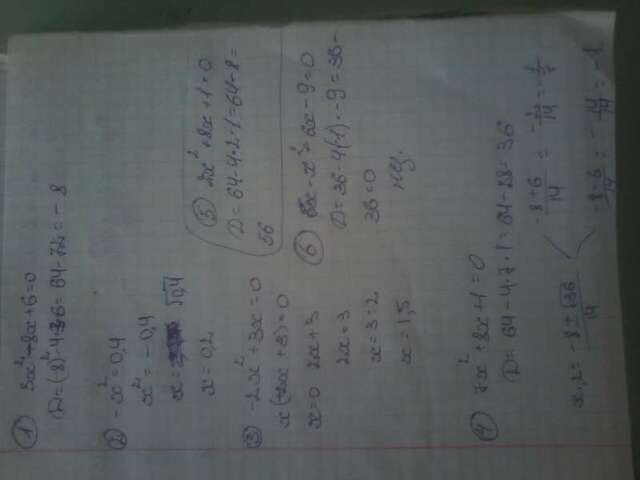 ① 3x² - 8x + 6 = 0
D = (8)² - 4·3·6 = 64 - 72 = - 8
② -x² = 0,4
x² = -0,4
x = √0,4
x = 0,2
③ -2x² + 3x = 0
x(-2x + 3) = 0
x = 0 2x + 3
2x = 3
x = 3 : 2
x = 1,5
④ 7x² + 8x + 1 = 0
D = 64 - 4·7·1 = 64 - 28 = 36
x₁,₂ = -8 ± √36 / 14
-8 + 6 / 14 = - 2/14 = - 1/7
-8 - 6 / 14 = - 14/14 = -1
⑤ 2x² + 8x + 1 = 0
D = 64 - 4·2·1 = 64 - 8 =
56
⑥ 6x - x² - 9 = 0
D = 36 - 4(-1)·-9 = 36 -
36 = 0